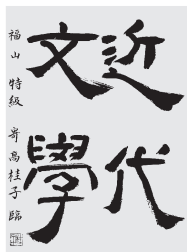 近代
文學
福山 特級 寄高桂子 臨